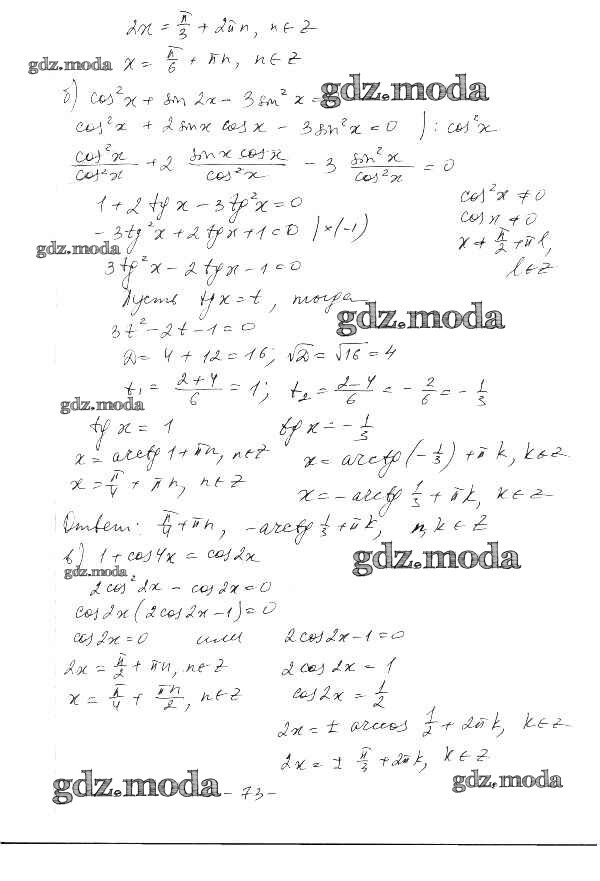 2x = π/3 + 2πn, n∈Z
gdz.moda x = π/6 + πn, n∈Z
б) cos²x + sin 2x - 3 sin²x = gdz.moda
cos²x + 2 sinx cosx - 3 sin²x = 0 | : cos²x
cos²x/cos²x + 2 sinx cosx/cos²x - 3 sin²x/cos²x = 0
1 + 2 tg x - 3 tg²x = 0 cos²x ≠ 0
- 3tg²x + 2tgx + 1 = 0 |×(-1) cosx ≠ 0
gdz.moda x ≠ π/2 + πl,
3tg²x - 2tgx - 1 = 0 l∈Z
Пусть tgx = t, тогда
3t² - 2t - 1 = 0 gdz.moda
D = 4 + 12 = 16; √D = √16 = 4
t₁ = (2+4)/6 = 1; t₂ = (2-4)/6 = - 2/6 = - 1/3
gdz.moda
tg x = 1 tg x = - 1/3
x = arctg 1 + πn, n∈Z x = arctg(- 1/3) + πk, k∈Z.
x = π/4 + πn, n∈Z x = - arctg 1/3 + πk, k∈Z
Ответ: π/4 + πn, - arctg 1/3 + πk, n,k ∈ Z
в) 1 + cos4x = cos2x gdz.moda
gdz.moda
2cos²2x - cos2x = 0
cos2x (2cos2x - 1) = 0
cos2x = 0 или 2cos2x - 1 = 0
2x = π/2 + πn, n∈Z 2cos2x = 1
x = π/4 + πn/2, n∈Z cos2x = 1/2
2x = ± arccos 1/2 + 2πk, k∈Z
2x = ± π/3 + 2πk, k∈Z
gdz.moda - 73 - gdz.moda